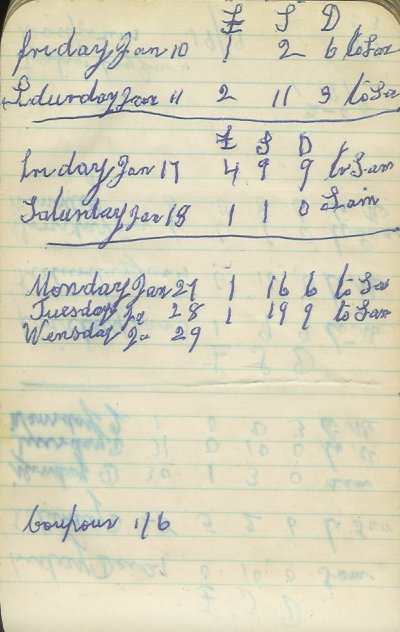 £ S D
Friday Jan 10 1 2 6 to Sam
Saturday Jan 11 2 11 3 to Sa
£ S D
Friday Jan 17 4 9 9 to Sam
Saturday Jan 18 1 1 0 Sam
Monday Jan 27 1 16 6 to Sa
Tuesday Ja 28 1 19 9 to Sam
Wensday Ja 29
Coupour 1/6